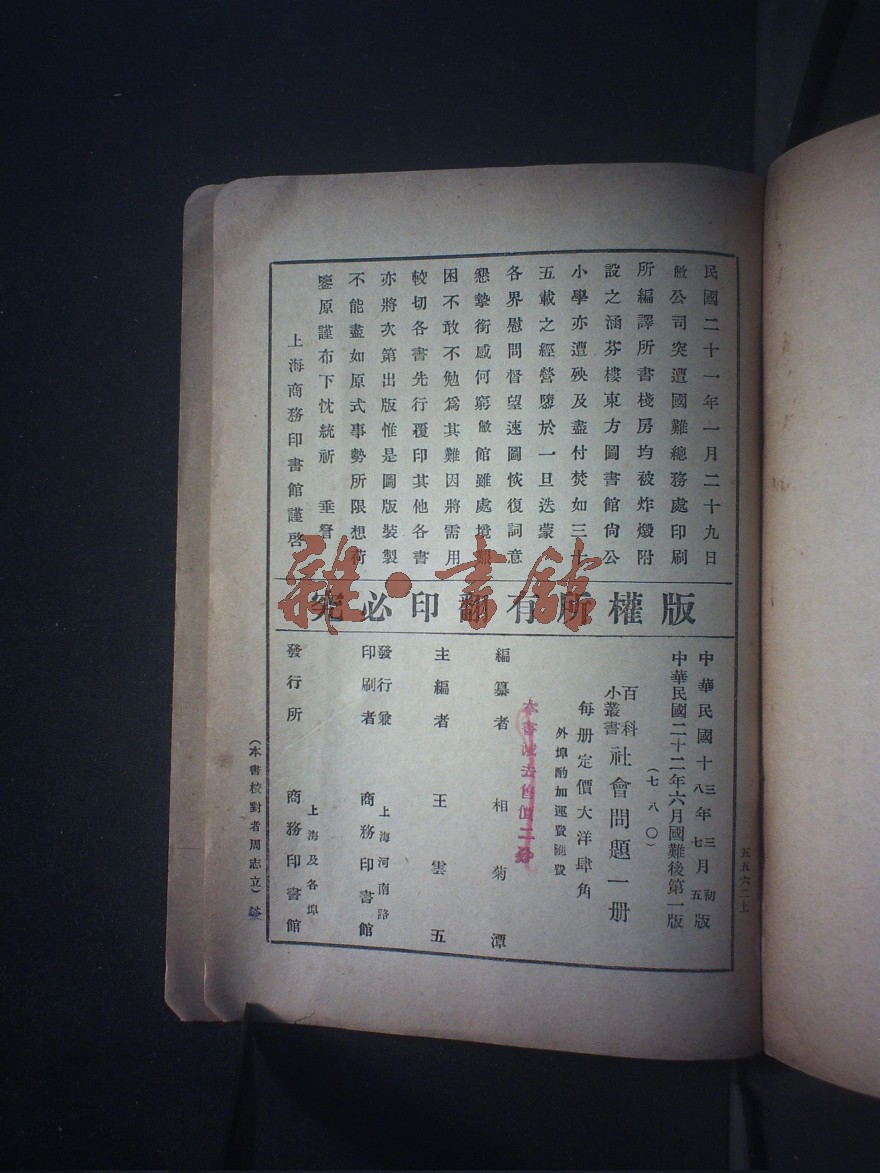 民國二十一年一月二十九日
敝公司突遭國難總務處印刷
所編譯所書棧房均被炸燬附
設之涵芬樓東方圖書館尙公
小學亦遭殃及盡付焚如三十
五載之經營隳於一旦迭蒙
各界慰問督望速圖恢復詞意
懇摯銜感何窮敝館雖處境艱
困不敢不勉爲其難因將需用
較切各書先行覆印其他各書
亦將次第出版惟是圖版裝製
不能盡如原式事勢所限想荷
鑒原謹布下忱統祈 垂詧
上海商務印書館謹啓
版權所有翻印必究
五五六二上
中華民國十三年三月初版
八 七 五
中華民國二十二年六月國難後第一版
(七八〇)
百科小叢書 社會問題一册
每册定價大洋肆角
外埠酌加運費匯費
編纂者 相菊潭
主編者 王雲五
發行兼印刷者 上海河南路 商務印書館
發行所 上海及各埠 商務印書館
(本書校對者周志立)
雜·書館